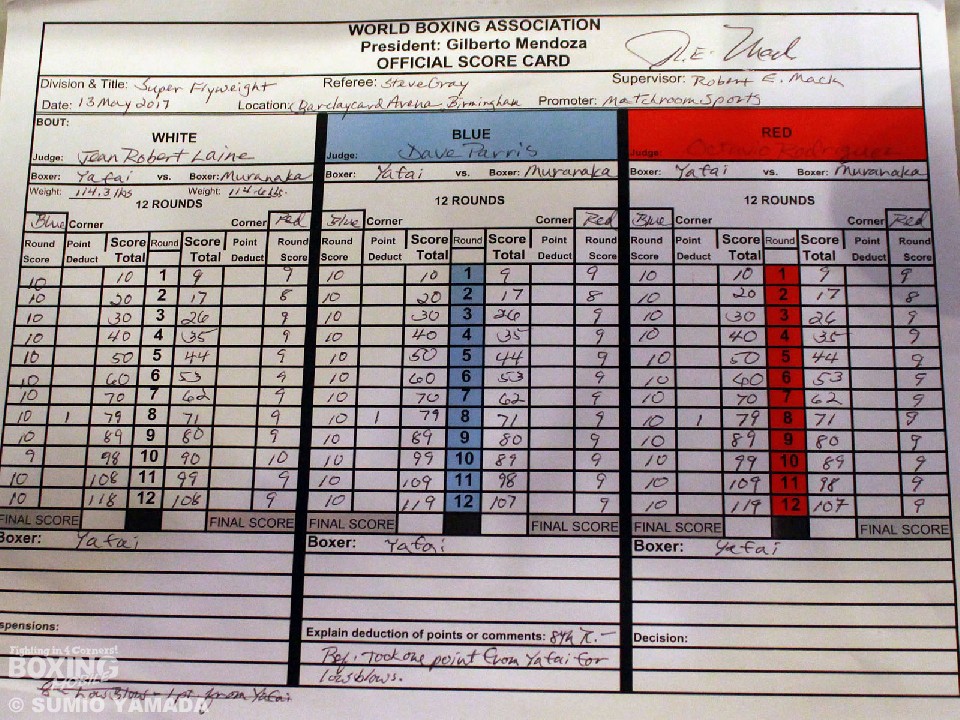 WORLD BOXING ASSOCIATION
President: Gilberto Mendoza
OFFICIAL SCORE CARD
Division & Title: Super Flyweight Referee: Steve Gray Supervisor: Robert E. Mack
Date: 13 May 2017 Location: Barclaycard Arena, Birmingham Promoter: Matchroom Sports
BOUT:
WHITE BLUE RED
Judge: Jean Robert Laine Judge: Dave Parris Judge: Octavio Rodriguez
Boxer: Yafai vs. Boxer: Muranaka Boxer: Yafai vs. Boxer: Muranaka Boxer: Yafai vs. Boxer: Muranaka
Weight: 114.3 lbs Weight: 114.6 lbs.
12 ROUNDS 12 ROUNDS 12 ROUNDS
Blue Corner Corner Red Blue Corner Corner Red Blue Corner Corner Red
Round Point Score Round Score Point Round Round Point Score Round Score Point Round Round Point Score Round Score Point Round
Score Deduct Total Total Deduct Score Score Deduct Total Total Deduct Score Score Deduct Total Total Deduct Score
10 10 1 9 9 10 10 1 9 9 10 10 1 9 9
10 20 2 17 8 10 20 2 17 8 10 20 2 17 8
10 30 3 26 9 10 30 3 26 9 10 30 3 26 9
10 40 4 35 9 10 40 4 35 9 10 40 4 35 9
10 50 5 44 9 10 50 5 44 9 10 50 5 44 9
10 60 6 53 9 10 60 6 53 9 10 60 6 53 9
10 70 7 62 9 10 70 7 62 9 10 70 7 62 9
10 1 79 8 71 9 10 1 79 8 71 9 10 1 79 8 71 9
10 89 9 80 9 10 89 9 80 9 10 89 9 80 9
9 98 10 90 10 10 99 10 89 9 10 99 10 89 9
10 108 11 99 9 10 109 11 98 9 10 109 11 98 9
10 118 12 108 9 10 119 12 107 9 10 119 12 107 9
FINAL SCORE FINAL SCORE FINAL SCORE FINAL SCORE FINAL SCORE FINAL SCORE
Boxer: Yafai Boxer: Yafai Boxer: Yafai
spensions: Explain deduction of points or comments: 8th R.- Decision:
Ref. took one point from Yafai for
low blows.
low blow - 1 pt from Yafai
Fighting in 4 Corners!
BOXING
© SUMIO YAMADA